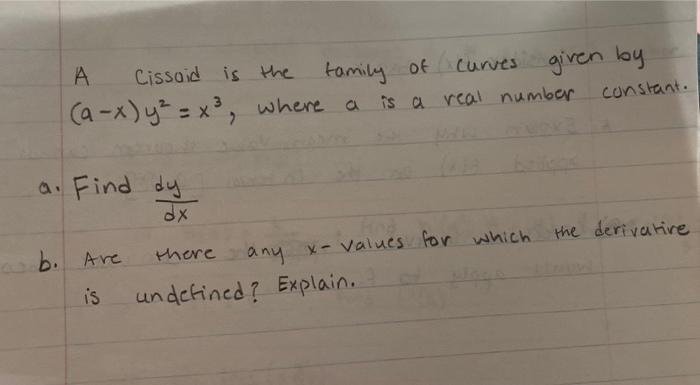 A Cissoid is the family of curves given by
(a-x)y² = x³, where a is a real number constant.
a. Find dy/dx
b. Are there any x-values for which the derivative
is undefined? Explain.